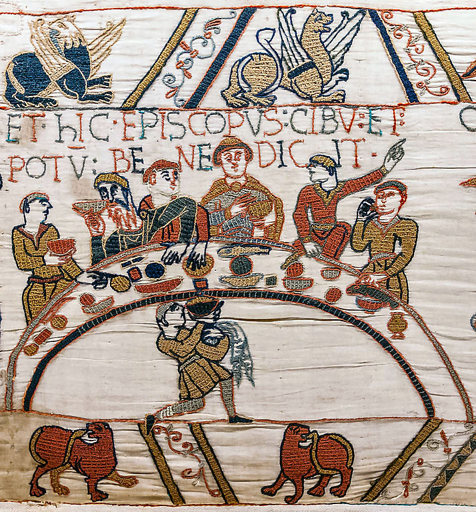 ET·hIC·EPISCOPVS:CIBV:ET·
POTV:BE NE DIC IT·